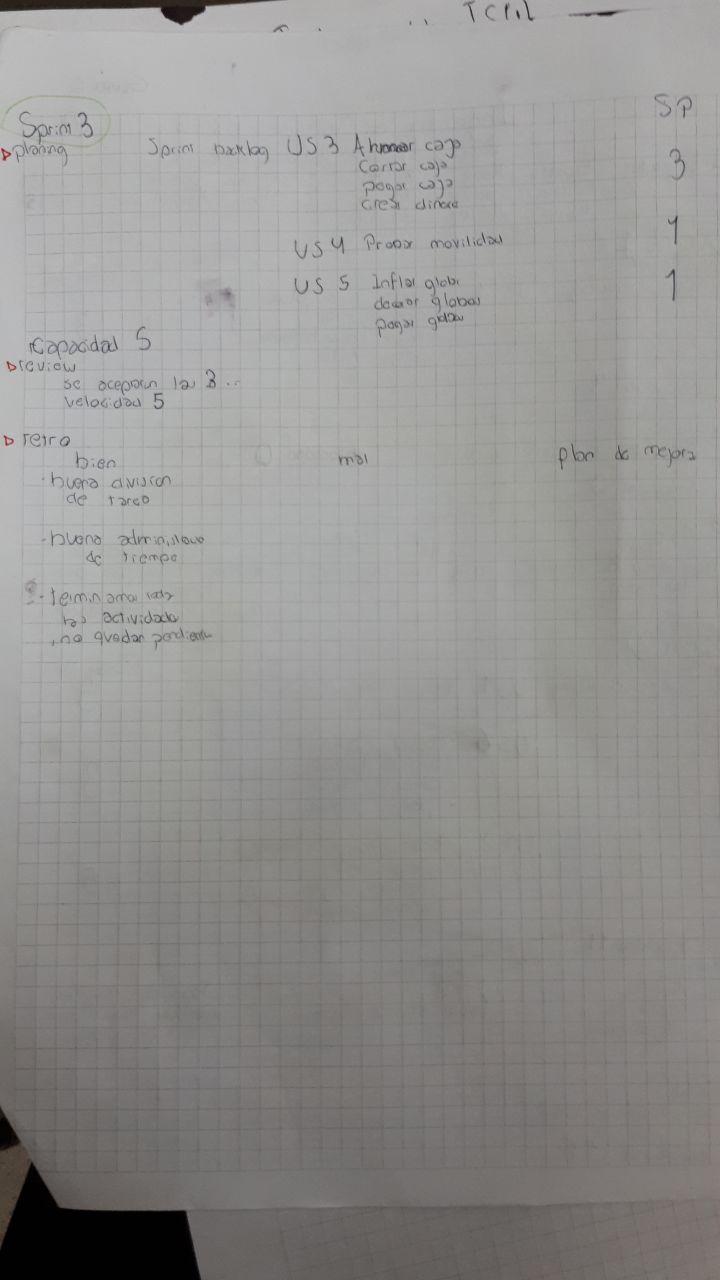 TCPIL
SP
Sprint 3
planing Sprint backlog US 3 caja 3
Cerrar caja
pegar caja
crear dinero
US 4 Probar movilidad 1
US 5 Inflar globo 1
globos
pegar globos
Capacidad 5
review
se aceptaron las 3...
velocidad 5
retro
bien mal plan de mejora
- buena division
de tarea
- buena
de tiempo
- terminamos
las actividades
, no quedan pendiente